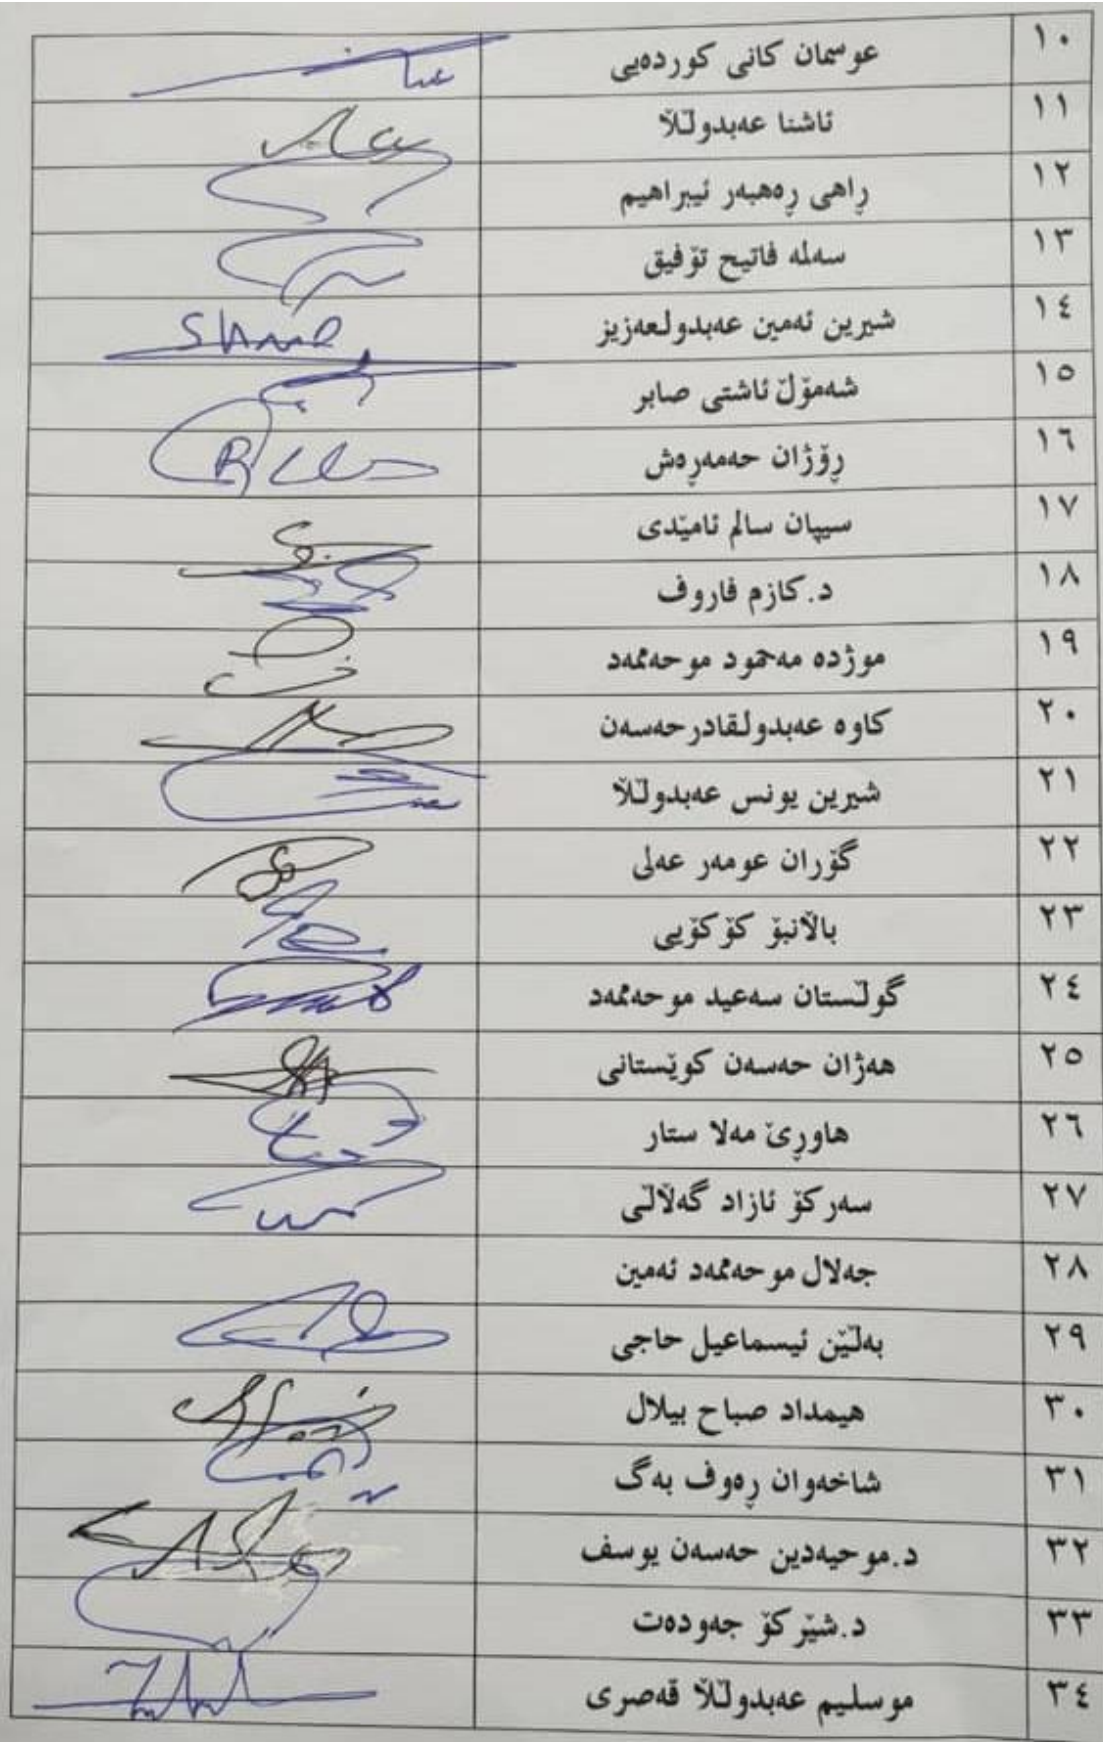 ١٠ عوسمان کانی کوردەیی
١١ ئاشنا عەبدوڵڵا
١٢ ڕاهی ڕەهبەر ئیبراهیم
١٣ سەلە فاتیح تۆفیق
١٤ شیرین ئەمین عەبدولعەزیز
١٥ شەمۆڵ ئاشتی صابر
١٦ ڕۆژان حەمەڕەش
١٧ سیپان سالم ئامێدی
١٨ د.کازم فاروف
١٩ موژدە مەحمود موحەممەد
٢٠ کاوە عەبدولقادرحەسەن
٢١ شیرین یونس عەبدوڵڵا
٢٢ گۆران عومەر عەلی
٢٣ باڵانبۆ کۆکۆیی
٢٤ گوڵستان سەعید موحەممەد
٢٥ هەژان حەسەن کوێستانی
٢٦ هاوڕێ مەلا ستار
٢٧ سەرکۆ ئازاد گەڵاڵی
٢٨ جەلال موحەممەد ئەمین
٢٩ بەڵێن ئیسماعیل حاجی
٣٠ هیمداد صباح بیلال
٣١ شاخەوان ڕەوف بەگ
٣٢ د.موحیەدین حەسەن یوسف
٣٣ د.شێرکۆ جەودەت
٣٤ موسلیم عەبدوڵڵا قەصری